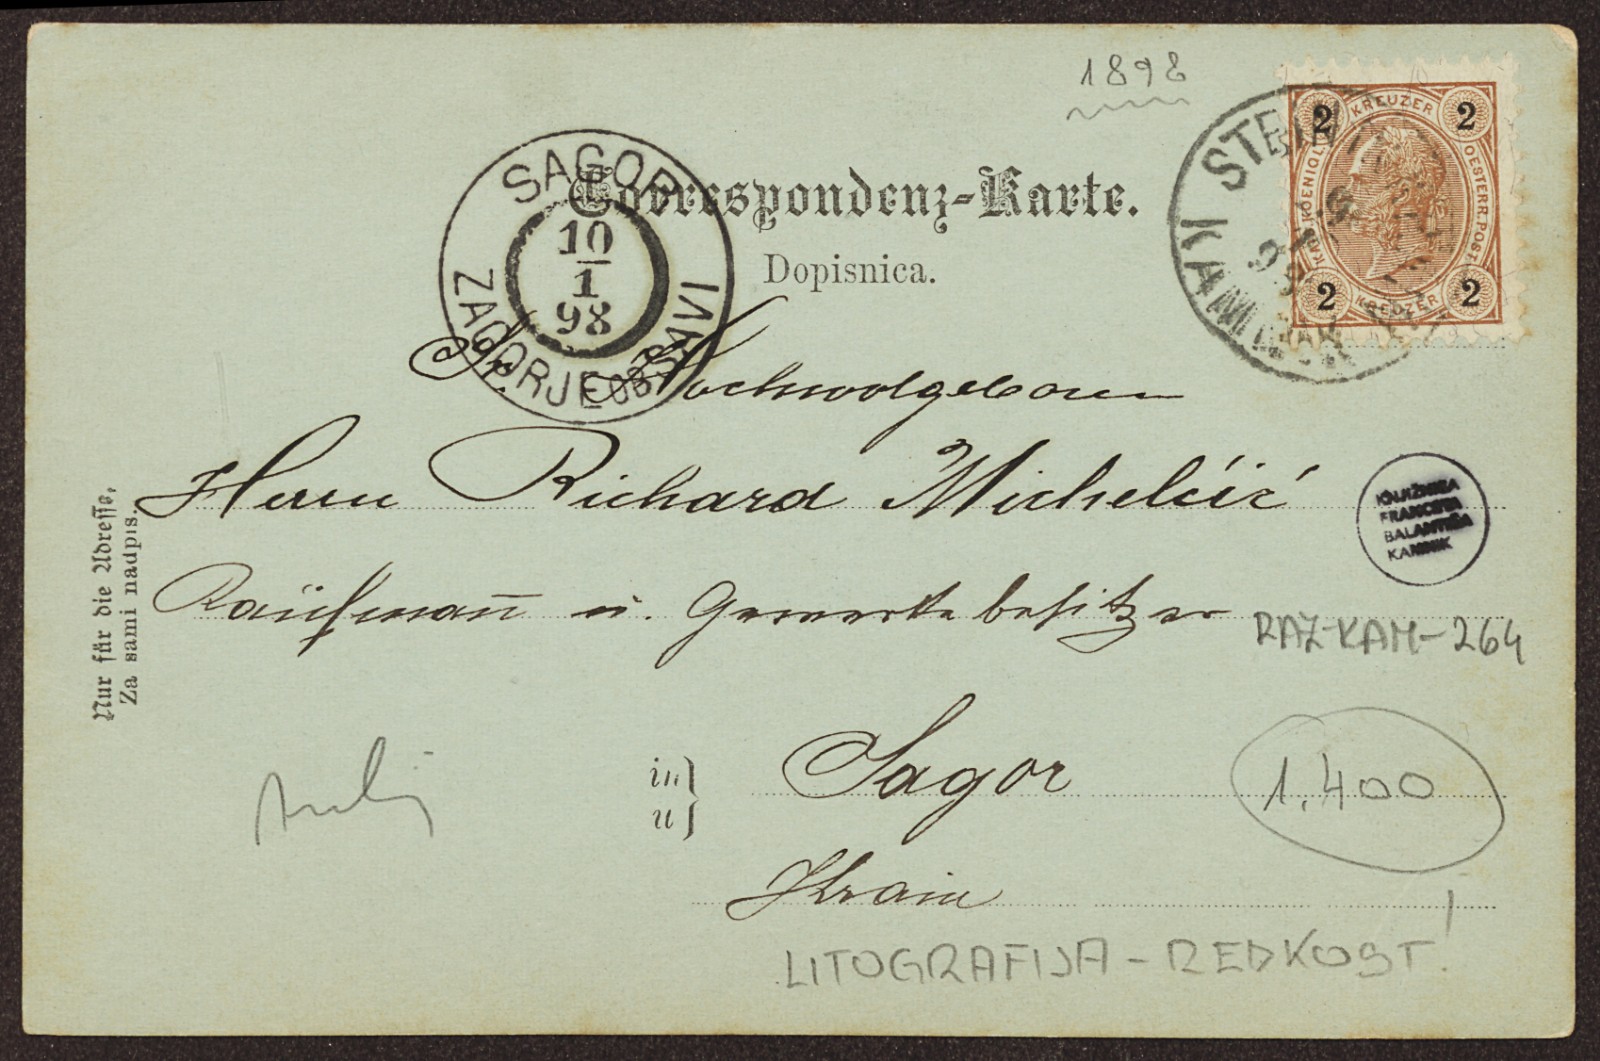 1898
2 KREUZER 2
KAIS. KOENIGL. OESTERR. POST.
2 KREUZER 2
STEIN
KAMNIK
SAGOR
10
1
98
ZAGORJE OB SAVI
Correspondenz-Karte.
Dopisnica.
Sr. Hochwolgeboren
Herrn Richard Michelčič
Kaufmann u. Gewerkebesitzer
KNJIŽNICA
FRANCETA
BALANTIČA
KAMNIK
RAZ-KAM-264
Nur für die Adresse.
Za sami nadpis.
in
u
Sagor
1.400
Krain
LITOGRAFIJA - REDKOST!